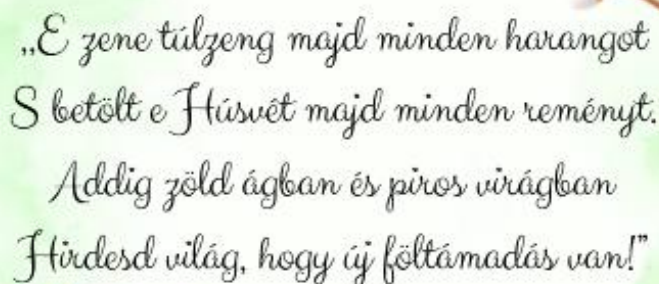 „E zene túlzeng majd minden harangot
S betölt e Húsvét majd minden reményt.
Addig zöld ágban és piros virágban
Hirdesd világ, hogy új föltámadás van!”